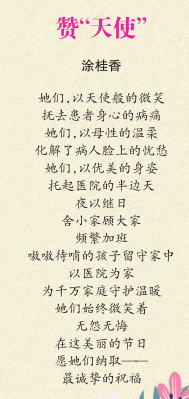 赞“天使”
涂桂香
她们，以天使般的微笑
抚去患者身心的病痛
她们，以母性的温柔
化解了病人脸上的忧愁
她们，以优美的身姿
托起医院的半边天
夜以继日
舍小家顾大家
频繁加班
嗷嗷待哺的孩子留守家中
以医院为家
为千万家庭守护温暖
她们始终微笑着
无怨无悔
在这美丽的节日
愿她们纳取——
最诚挚的祝福